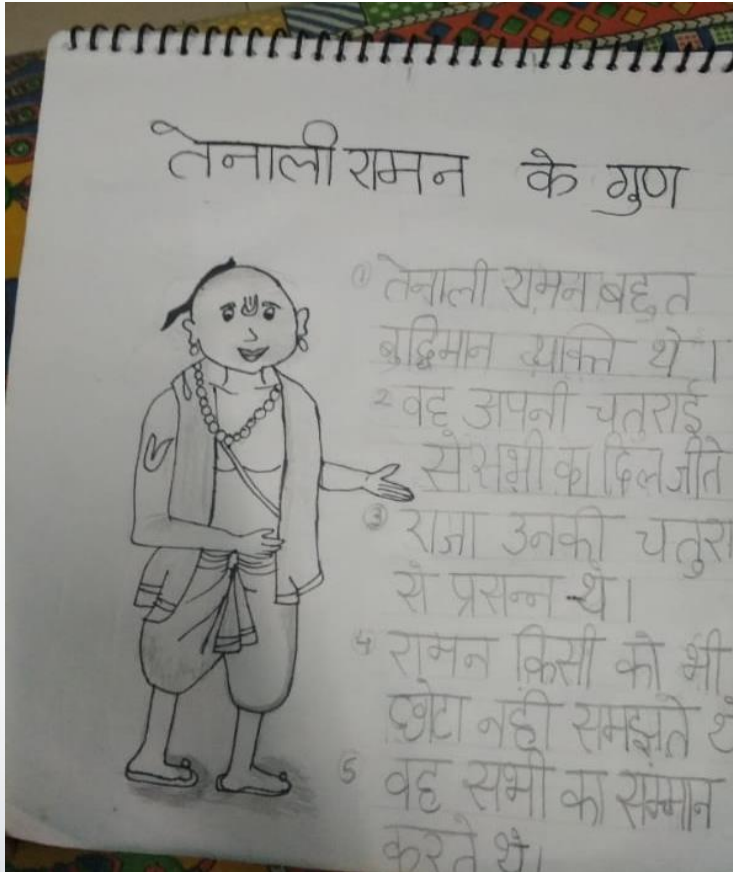 तेनाली रामन के गुण
① तेनाली रामन बहुत
बुद्धिमान व्यक्ति थे।
2 वह अपनी चतुराई
से सभी का दिल जीते
③ राजा उनकी चतुरा
से प्रसन्न थे।
4 रामन किसी को भी
छोटा नहीं समझते थे
5 वह सभी का सम्मान
करते थे।